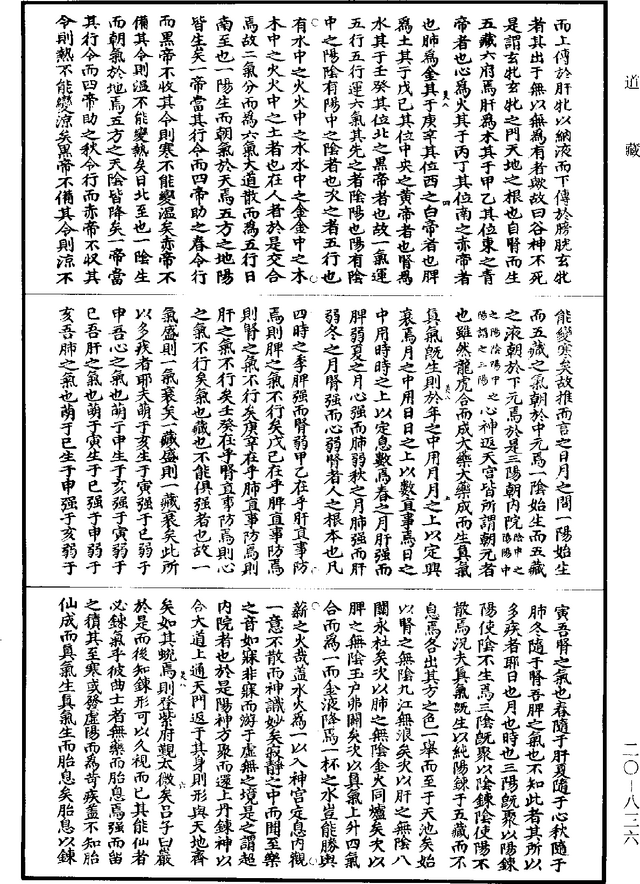 道藏
而上傳於肝牝以納液而下傳於膀胱玄牝
者其出于無以無為有者歟故曰谷神不死
是謂玄牝玄牝之門天地之根也自腎而生
五藏六府焉肝為木其于甲乙其位東之青
帝者也心為火其于丙丁其位南之赤帝者
也肺為金其于庚辛其位西之白帝者也脾
為土其于戊己其位中央之黃帝者也腎為
水其于壬癸其位北之黑帝者也故一氣運
五行五行運六氣其先之者陰陽也陽有陰
中之陽陰有陽中之陰者也次之者五行也
有水中之火火中之水水中之金金中之木
木中之火火中之土者也在人者於是交合
焉故二氣分而為六氣大道散而為五行日
南至也一陽生而朝氣於天焉五方之地陽
皆生矣一帝當其行令而四帝助之春令行
而黑帝不收其令則寒不能變溫矣赤帝不
備其令則溫不能變熱矣日北至也一陰生
而朝氣於地焉五方之天陰皆降矣一帝當
其行令而四帝助之秋令行而赤帝不收其
令則熱不能變涼矣黑帝不備其令則涼不
能變寒矣故推而言之日月之間一陽始生
而五藏之氣朝於中元焉一陰始生而五藏
之液朝於下元焉於是三陽朝內院陰中之陽陽中
之陽陰陽中之陽謂之三陽心神返天宮皆所謂朝元者
也雖然龍虎合而成大藥大藥成而生真氣
真氣既生則於年之中用月月之上以定興
衰焉月之中用日日之上以數直事焉日之
中用時時之上以定息數焉春之月肝強而
脾弱夏之月心強而肺弱秋之月肺強而肝
弱冬之月腎強而心弱腎者人之根本也凡
四時之季脾強而腎弱甲乙在乎肝直事防
焉則脾之氣不行矣戊己在乎脾直事防焉
則腎之氣不行矣庚辛在乎肺直事防焉則
肝之氣不行矣壬癸在乎腎直事防焉則心
之氣不行矣氣也藏也不能俱強者也故一
氣盛則一氣衰矣一藏盛則一藏衰矣此所
以多疾者耶夫萌于亥生于寅強于巳弱于
申吾心之氣也萌于申生于亥強于寅弱于
巳吾肝之氣也萌于寅生于巳強于申弱于
亥吾肺之氣也萌于巳生于申強于亥弱于
寅吾腎之氣也春隨于肝夏隨于心秋隨于
肺冬隨于腎吾脾之氣也不知此者其所以
多疾者耶日也月也時也三陽既聚以陽鍊
陽使陰不生焉三陰既聚以陰鍊陰使陽不
散焉況夫真氣既生以純陽鍊于五藏而不
息焉各出其方之色一舉而至于天池矣始
以腎之無陰九江無浪矣次以肝之無陰八
關永杜矣次以肺之無陰金火同爐矣次以
脾之無陰玉戶弗關矣次以真氣上升四氣
合而為一而金液降焉一杯之水豈能勝輿
薪之火哉蓋水火為一以入神宮定息內觀
一意不散而神識妙矣寂靜之中而聞至樂
之音如寐非寐而游于虛無之境是之謂超
內院者也於是陽神方聚而還上丹鍊神以
合大道上通天門返于其身則形與天地齊
矣如其蛻焉則登紫府觀太微矣呂子曰嚴
於是而後知鍊形可以久視而已其能仙者
必鍊氣乎彼曲士者無藥而胎息焉強而留
之積其至寒或發虛陽而為奇疾蓋不知胎
仙成而真氣生真氣生而胎息矣胎息以鍊
二〇—八三六